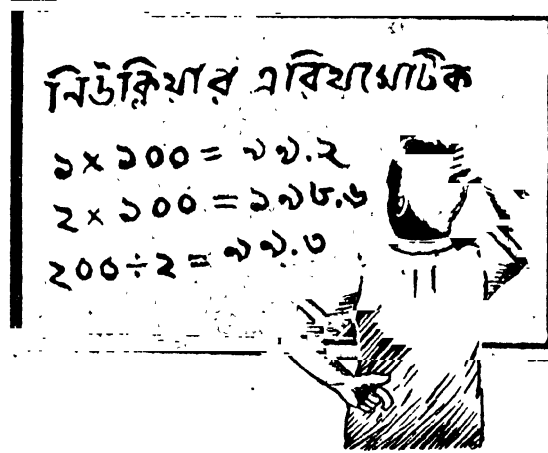 নিউক্লিয়ার এরিথমেটিক
১ × ১০০ = ৯৯.২
২ × ১০০ = ১৯৮.৬
২০০ ÷ ২ = ৯৯.৩